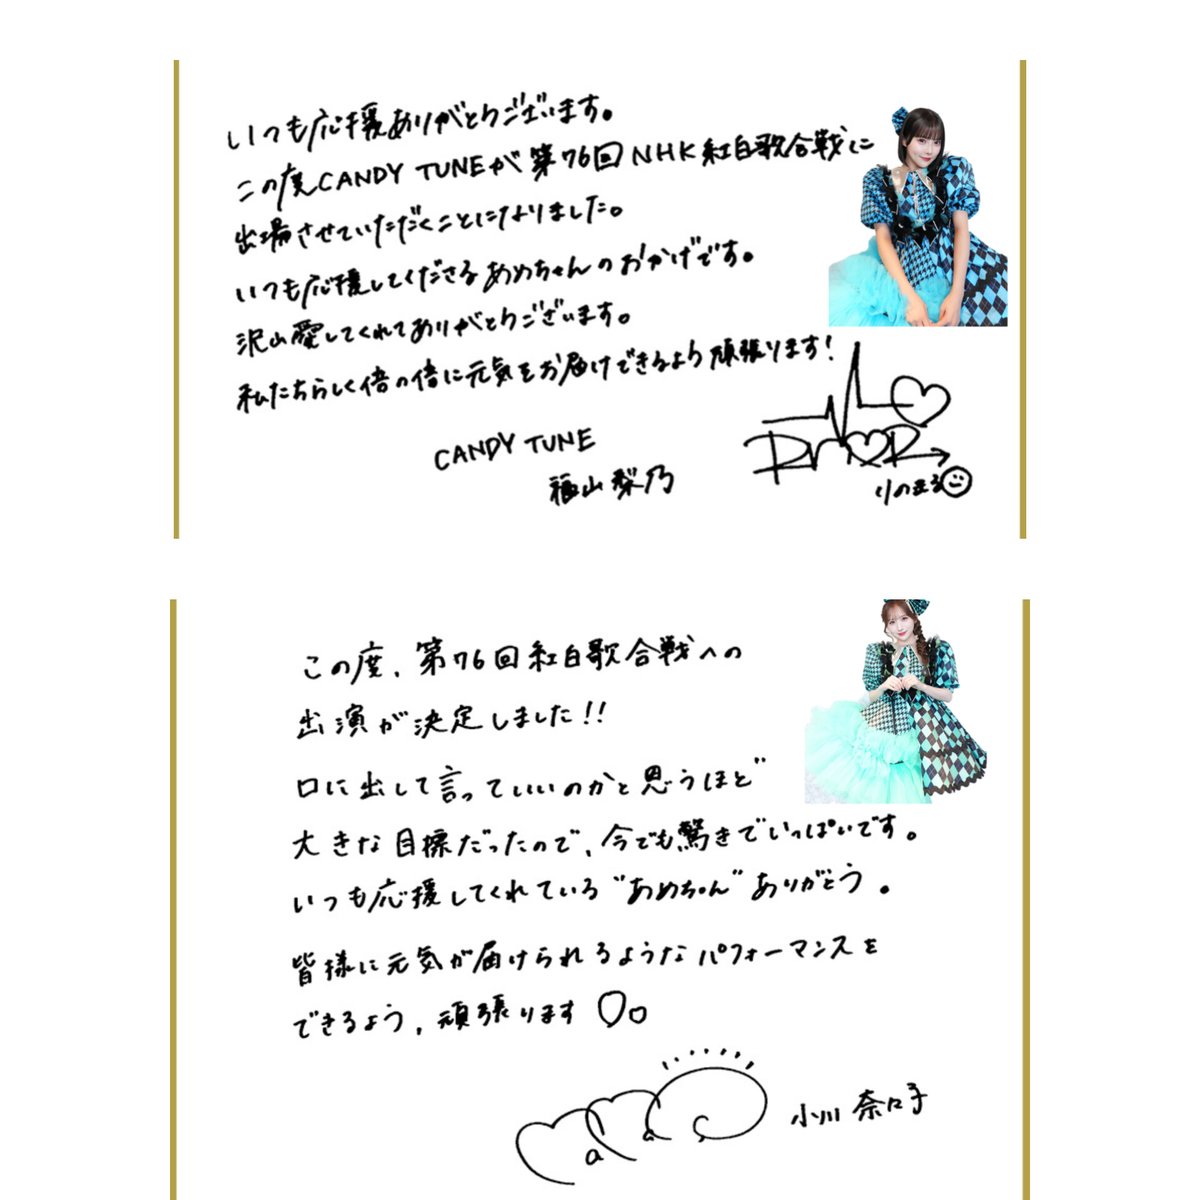 いつも応援ありがとうございます。
この度CANDY TUNEが第76回NHK紅白歌合戦に
出場させていただくことになりました。
いつも応援してくださるあめちゃんのおかげです。
沢山愛してくれてありがとうございます。
私たちらしく倍の倍に元気をお届けできるよう頑張ります!
CANDY TUNE
福山梨乃
りのまる
この度、第76回紅白歌合戦への
出演が決定しました!!
口に出して言っていいのかと思うほど
大きな目標だったので、今でも驚きでいっぱいです。
いつも応援してくれている“あめちゃん”ありがとう。
皆様に元気が届けられるようなパフォーマンスを
できるよう、頑張ります
小川奈々子